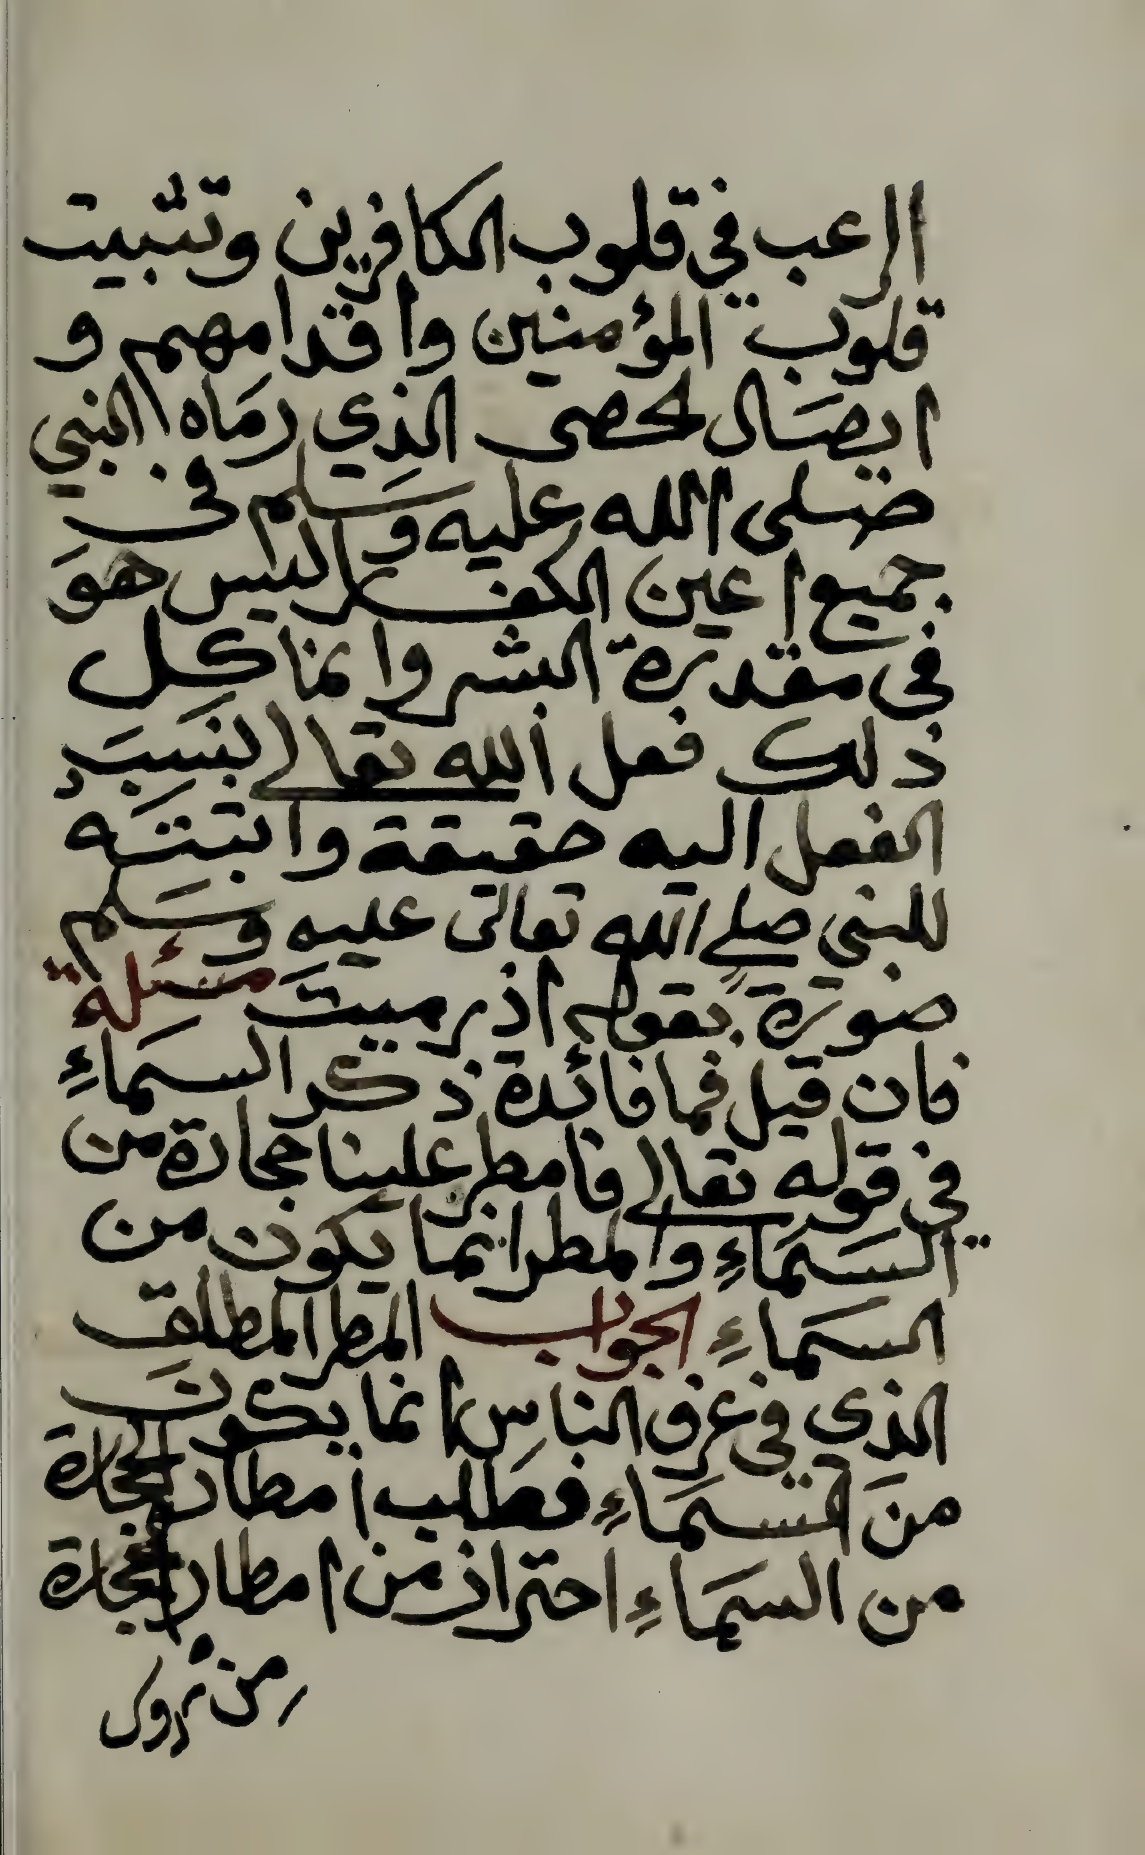 الرعب في قلوب الكافرين وتثبيت
قلوب المؤمنين واقدامهم و
ايصال لحصى الذي رماه النبي
صلى الله عليه وسلم فى
جميع اعين الكفار ليس هو
فى مقدرة البشر وانما كل
ذلك فعل الله تعالى بنسب
الفعل اليه حقيقة واثبته
للنبي صلى الله تعالى عليه وسلم
صورة بقوله اذ رميت مسئلة
فان قيل فما فائدة ذكر السماء
في قوله تعالى فامطر علينا حجارة من
السماء والمطر انما يكون من
السماء الجواب المطر المطلق
الذى في عرف الناس انما يكون
من السماء فطلب امطار الحجارة
من السماء احتراز من امطار الحجارة
من